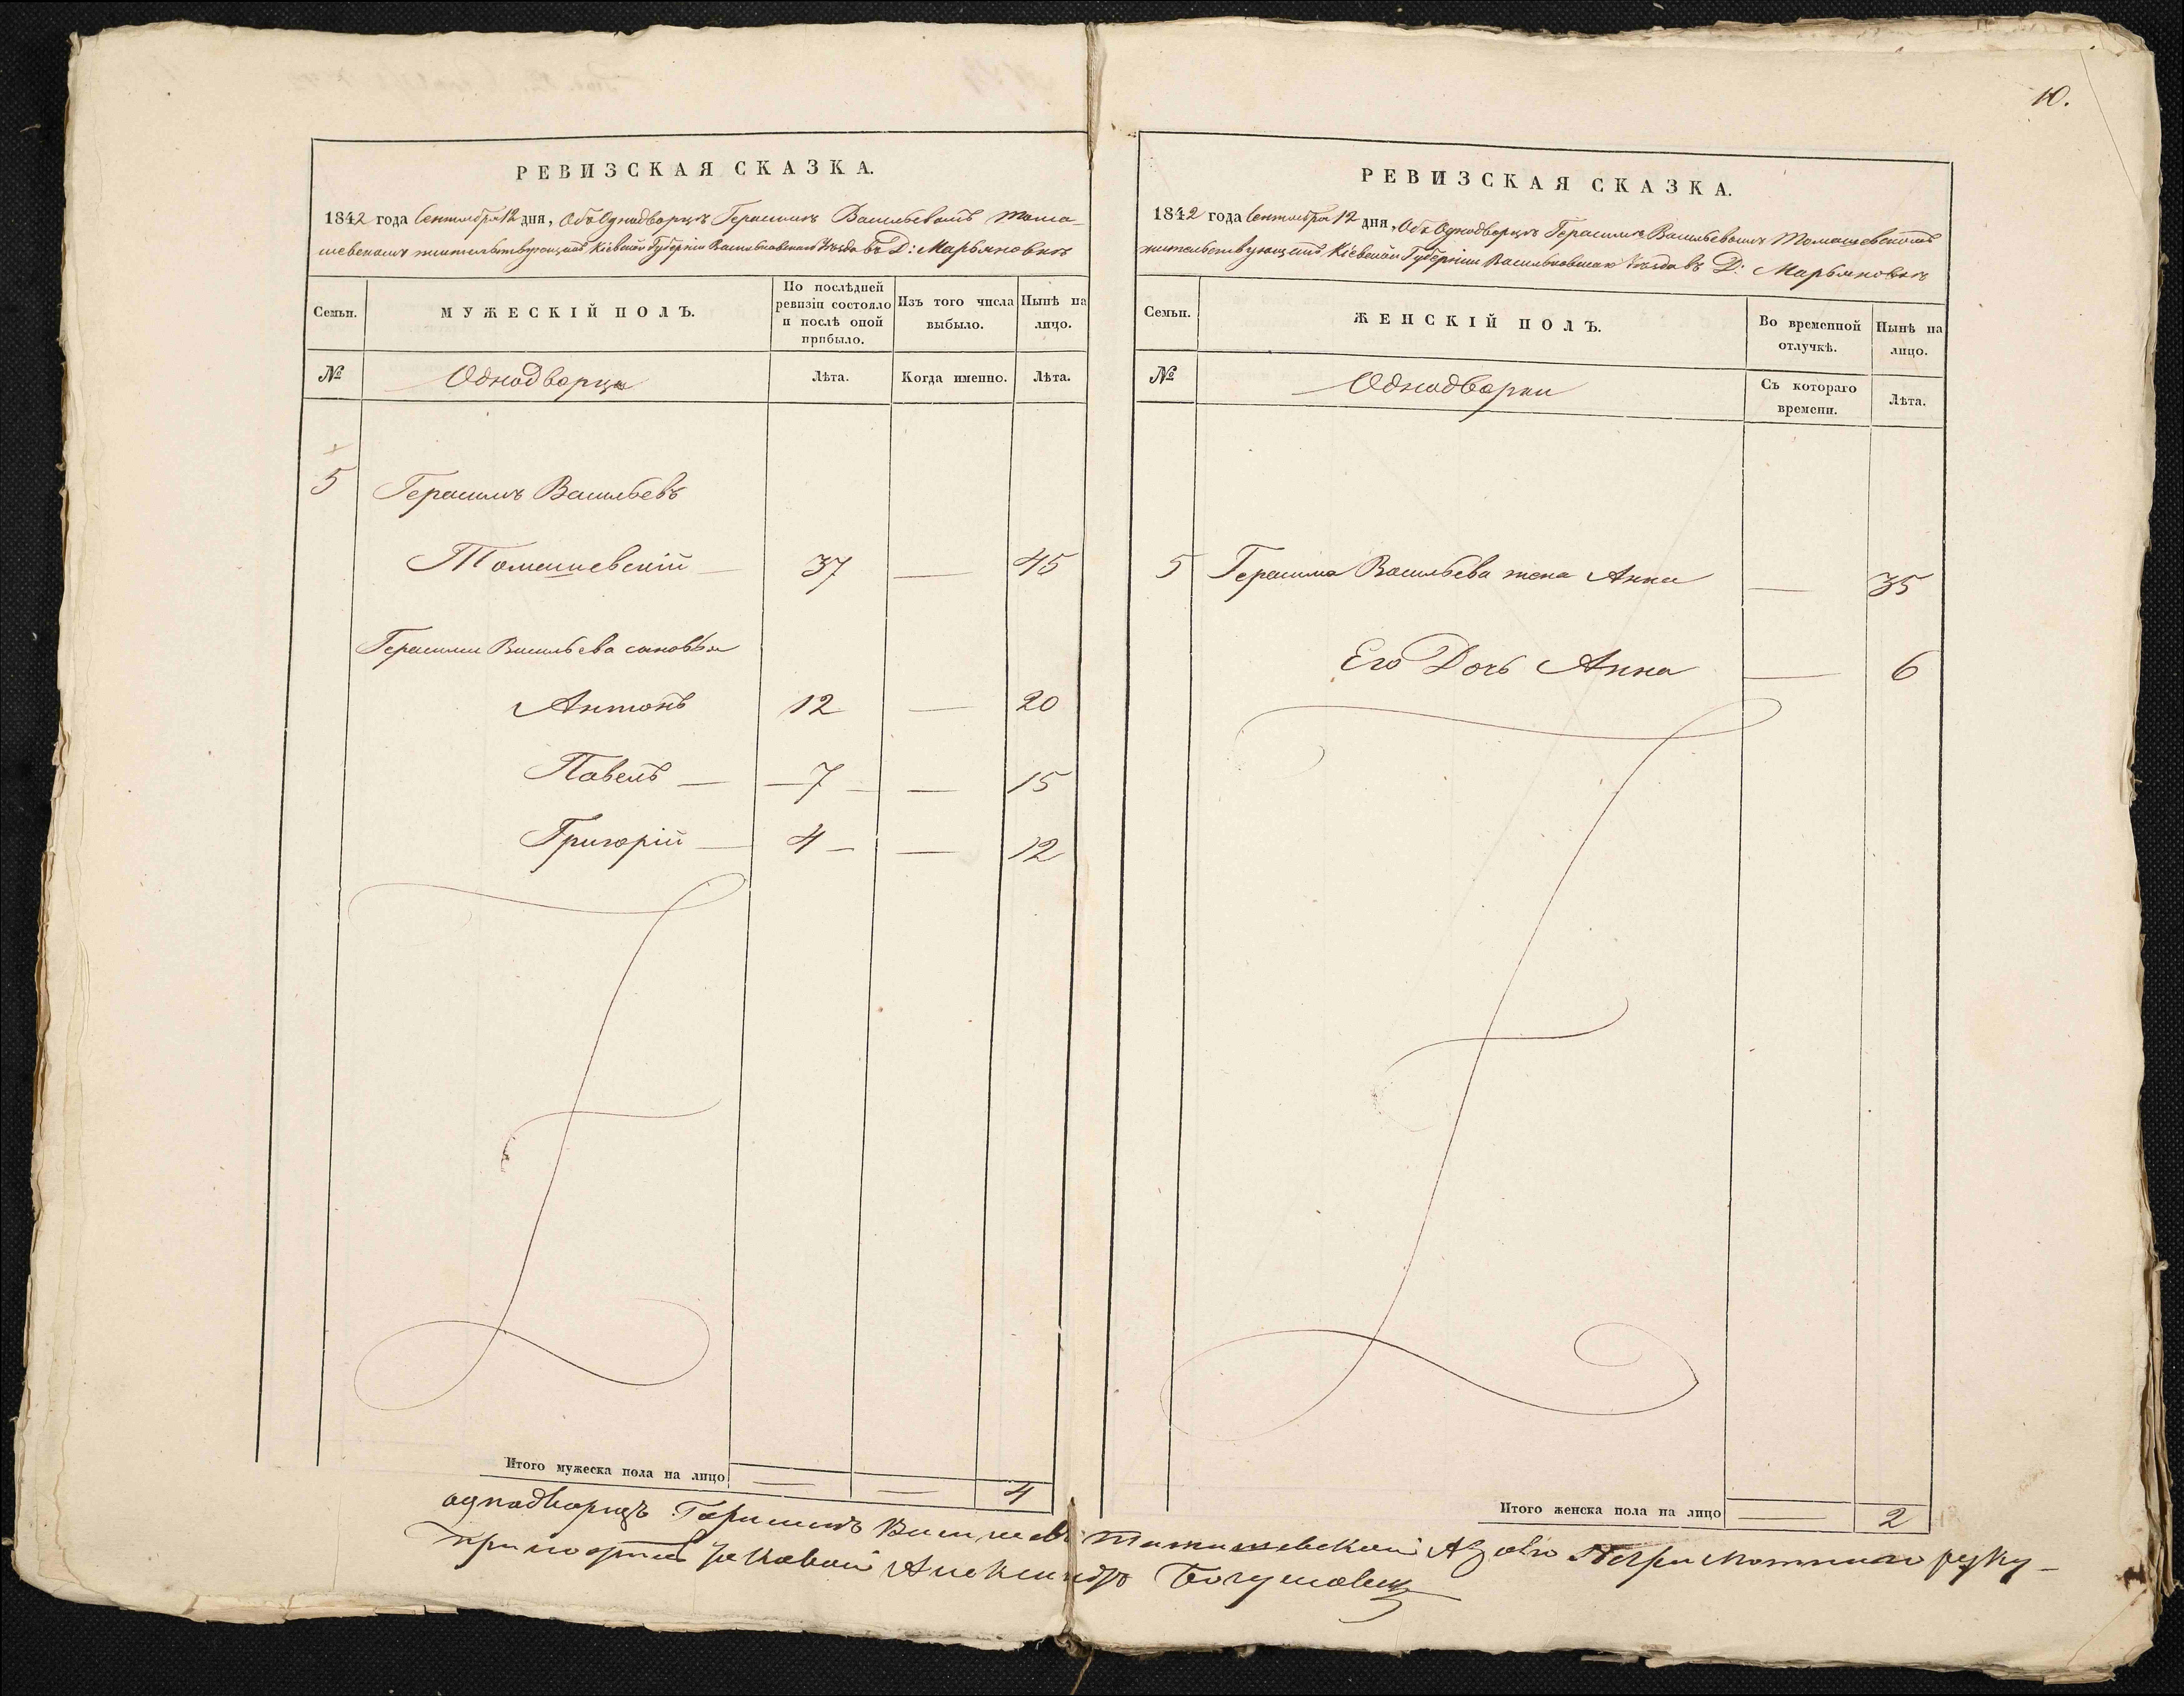 10.
РЕВИЗСКАЯ СКАЗКА.
1842 года Сентября 12 дня, Объ Однодворцѣ Герасимѣ Васильевомъ Тома-
шевскомъ жительствующимъ Кіевской Губерніи Васильковскаго Уѣзда въ Д: Марьяновкѣ
Семьи.
МУЖЕСКІЙ ПОЛЪ.
По послѣдней
ревизіи состояло
и послѣ оной
прибыло.
Изъ того числа
выбыло.
Нынѣ на
лицо.
№
Однодворцы
Лѣта.
Когда именно.
Лѣта.
5 Герасимъ Васильевъ
Томашевскій — 37 — 45
Герасима Васильева сыновья
Антонъ 12 — 20
Павелъ — 7 — — 15
Григорій — 4 — — 12
Итого мужеска пола на лицо — — 4
РЕВИЗСКАЯ СКАЗКА.
1842 года Сентября 12 дня, Объ Однодворцѣ Герасимѣ Васильевомъ Томашевскомъ
жительствующимъ Кіевской Губерніи Васильковскаго Уѣзда въ Д: Марьяновкѣ
Семьи.
ЖЕНСКІЙ ПОЛЪ.
Во временной
отлучкѣ.
Нынѣ на
лицо.
№
Однодворки
Съ котораго
времени.
Лѣта.
5 Герасима Васильева жена Анна — 35
Его Дочь Анна — 6
Итого женска пола на лицо — 2
однодворецъ Герасимъ Томашевской руку
Александръ